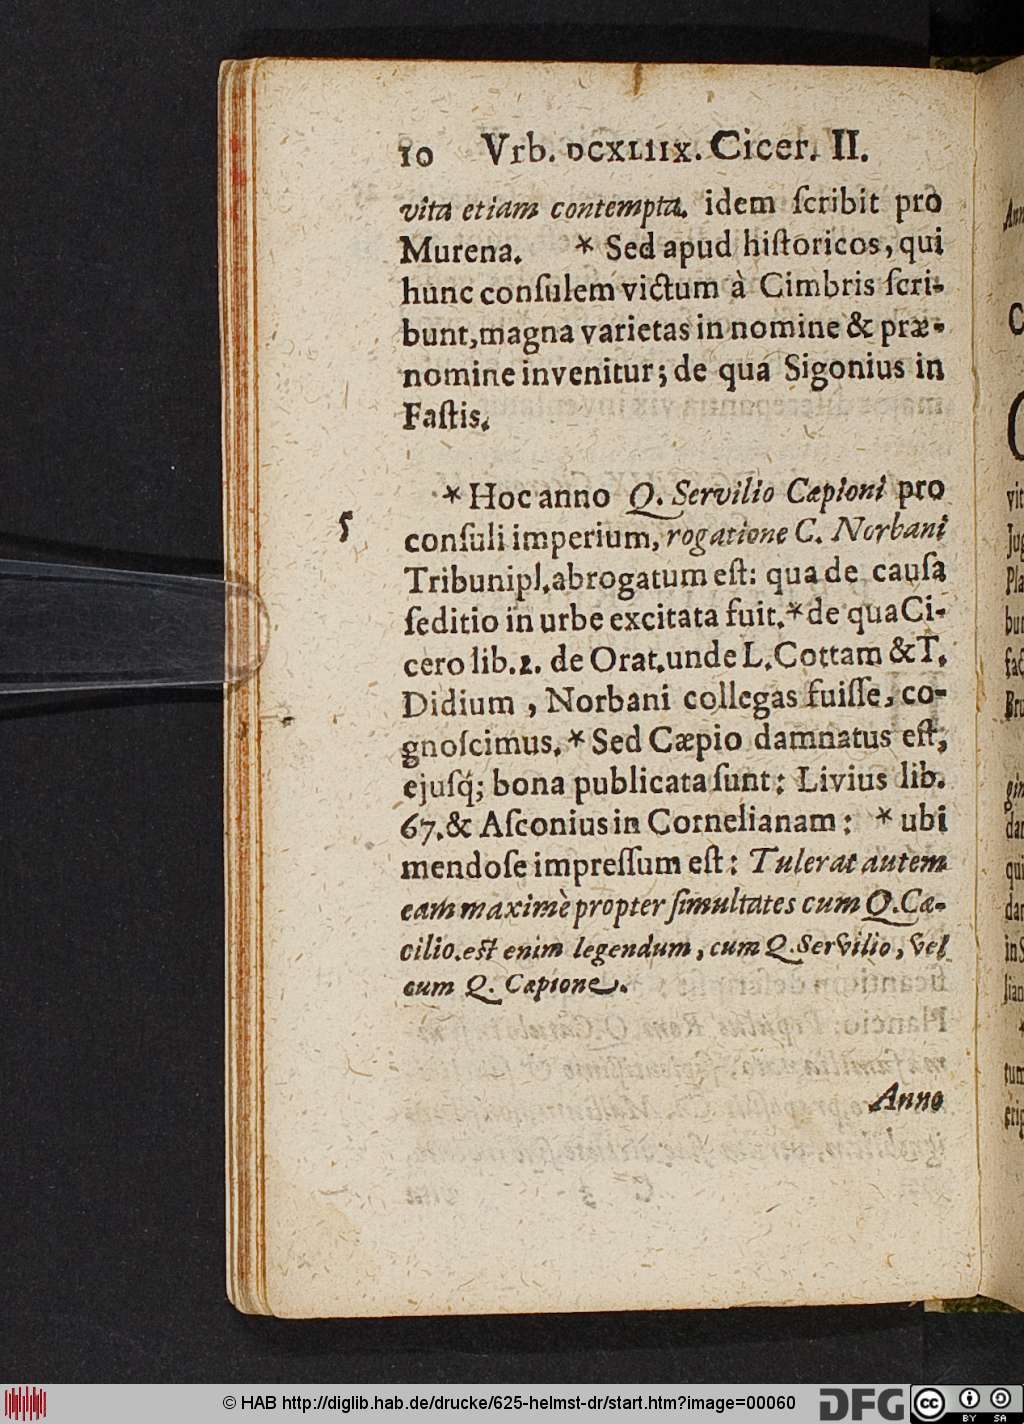 10 Vrb. DCXLIIX. Cicer. II.
vita etiam contempta. idem ſcribit pro
Murena. * Sed apud hiſtoricos, qui
hunc conſulem victum à Cimbris ſcri-
bunt, magna varietas in nomine & præ-
nomine invenitur; de qua Sigonius in
Faſtis.
* Hoc anno Q. Servilio Cæpioni pro
5
conſuli imperium, rogatione C. Norbani
Tribuni pl. abrogatum eſt: qua de cauſa
ſeditio in urbe excitata fuit. * de qua Ci-
cero lib. 2. de Orat. unde L. Cottam & T.
Didium, Norbani collegas fuiſſe, co-
gnoſcimus. * Sed Cæpio damnatus eſt,
ejuſq́; bona publicata ſunt: Livius lib.
67. & Aſconius in Cornelianam: * ubi
mendoſe impreſſum eſt: Tulerat autem
eam maximè propter ſimultates cum Q. Cæ-
cilio. eſt enim legendum, cum Q. Servilio, vel
cum Q. Cæpione.
Anno
© HAB http://diglib.hab.de/drucke/625-helmst-dr/start.htm?image=00060
DFG
cc BY SA